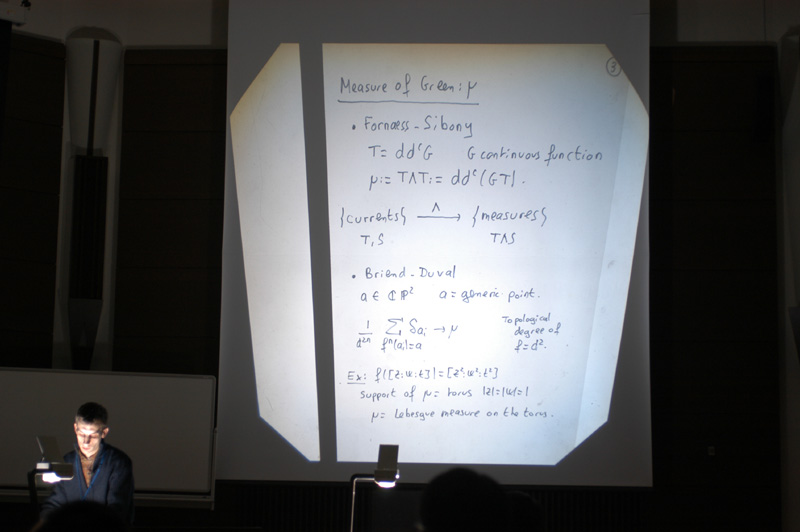 ③
Measure of Green: μ
• Fornæss-Sibony
T = ddᶜG G continuous function
μ:= T∧T:= ddᶜ(GT).
{currents} —∧→ {measures}
T, S T∧S
• Briend-Duval
a ∈ ℂℙ² a = generic point.
1/d²ⁿ Σ_{fⁿ(aᵢ)=a} δ_{aᵢ} → μ Topological degree of f = d².
Ex: f([z:w:t]) = [z²:w²:t²]
support of μ = torus |z|=|w|=1
μ = Lebesgue measure on the torus.